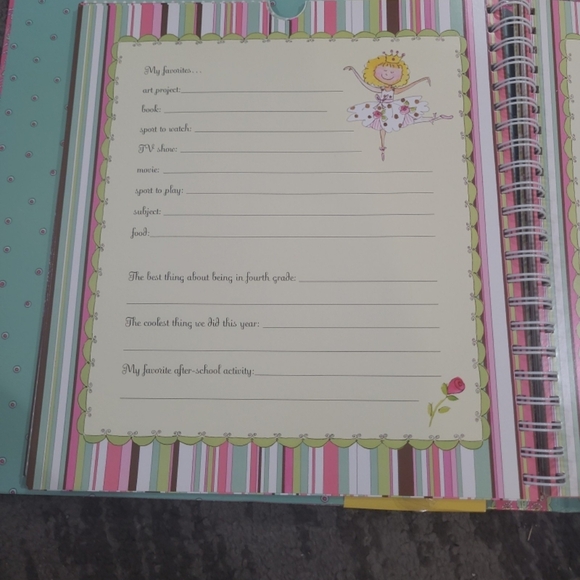 My favorites...
art project:
book:
sport to watch:
TV show:
movie:
sport to play:
subject:
food:
The best thing about being in fourth grade:
The coolest thing we did this year:
My favorite after-school activity: